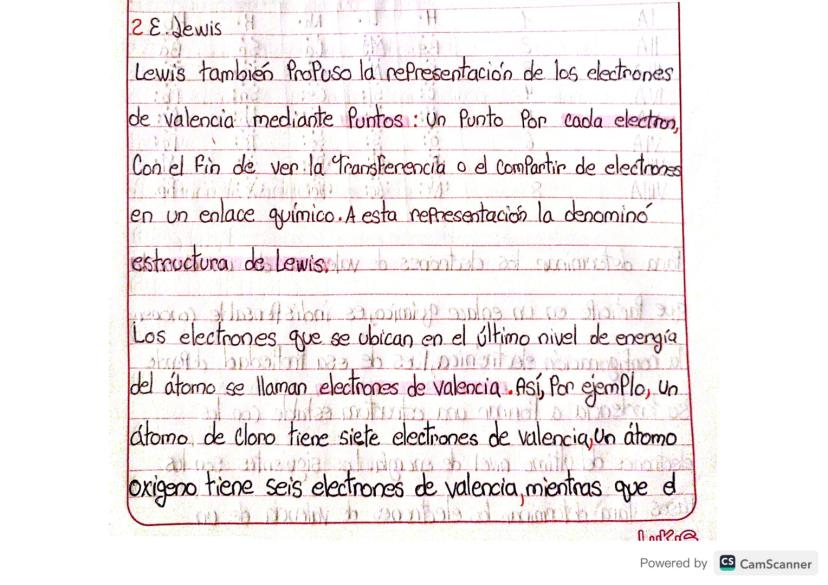 2 E. Lewis
Lewis también Propuso la representación de los electrones
de valencia mediante Puntos: Un Punto Por cada electron,
Con el Fin de ver la Transferencia o el compartir de electrones
en un enlace químico. A esta representación la denominó
estructura de Lewis.
Los electrones que se ubican en el último nivel de energía
del átomo se llaman electrones de valencia. Así, Por ejemplo, un
átomo de cloro tiene siete electrones de valencia, Un átomo
oxigeno tiene seis electrones de valencia, mientras que el
Powered by CS CamScanner